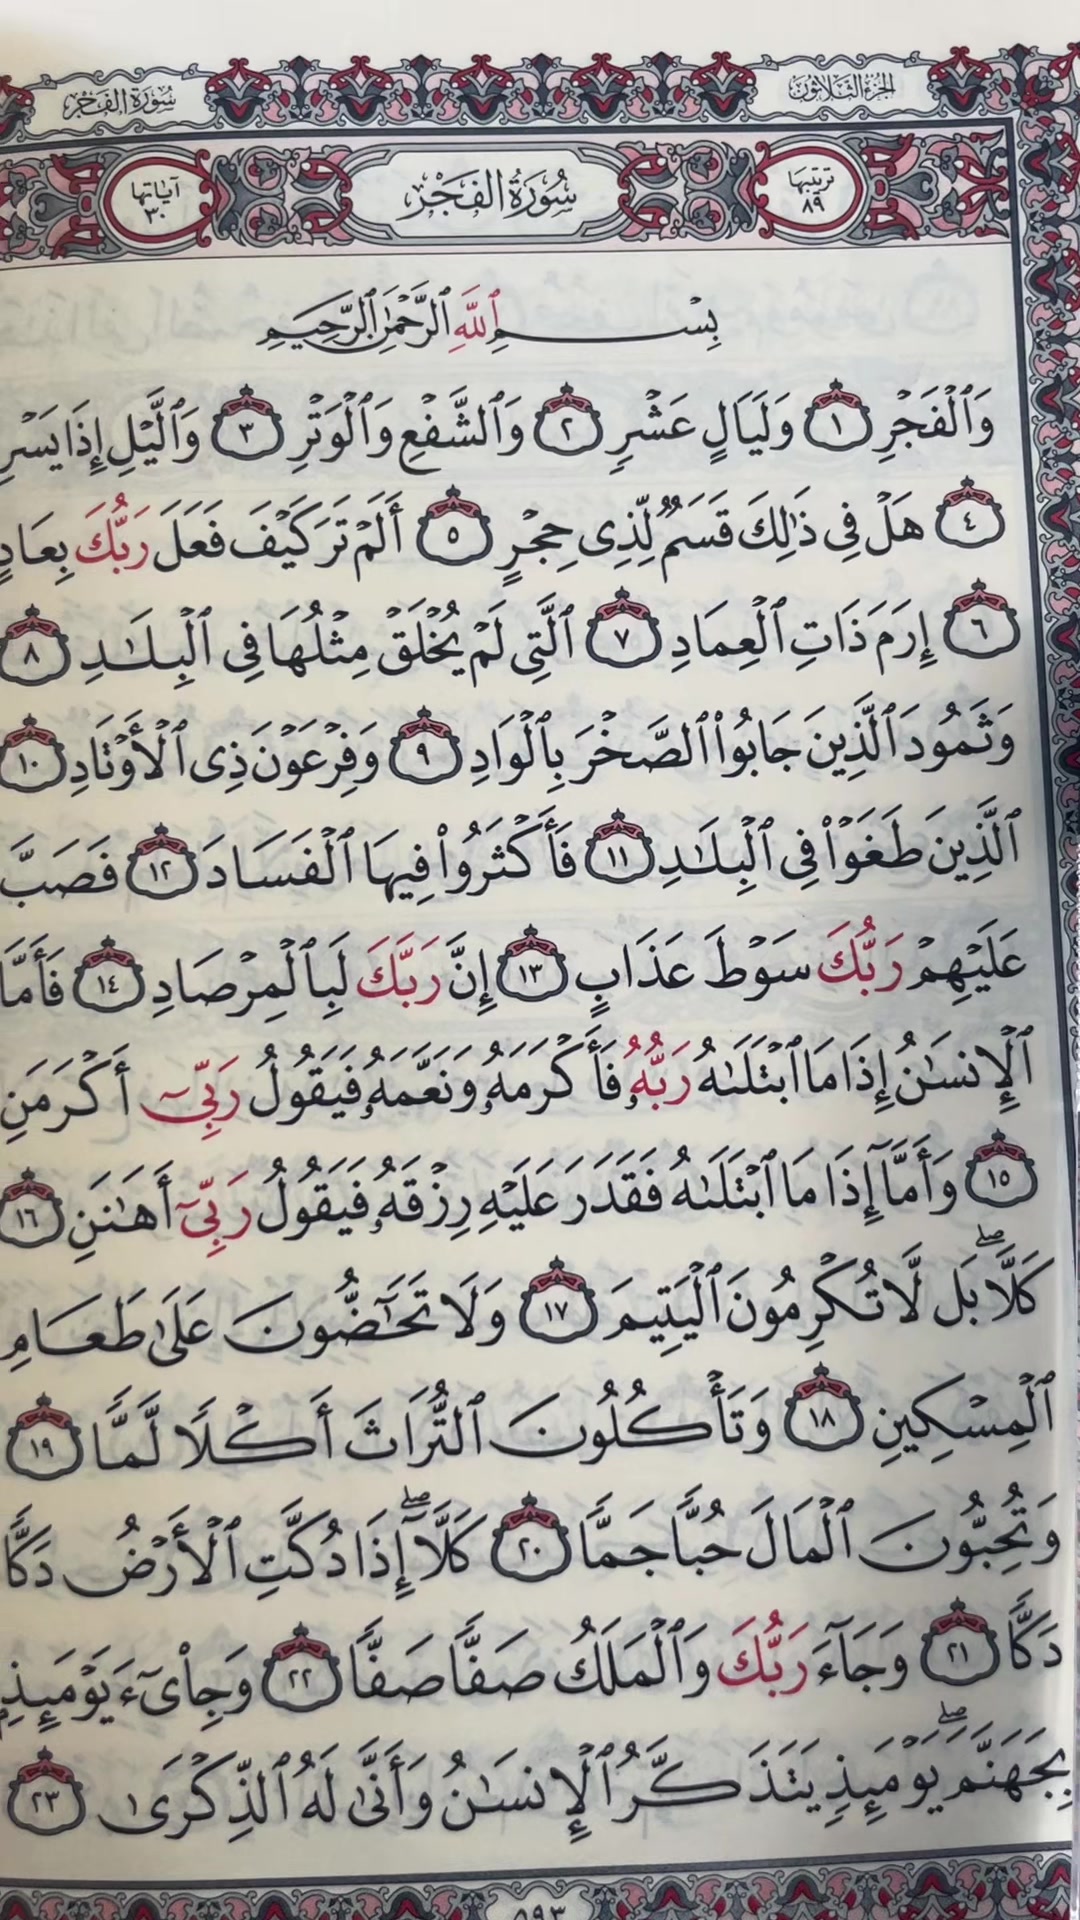 الجزء الثلاثون
سورة الفجر
ترتيبها
٨٩
سُورَةُ الفَجْرِ
آياتها
٣٠
بِسْمِ ٱللَّهِ ٱلرَّحْمَٰنِ ٱلرَّحِيمِ
وَٱلْفَجْرِ ١ وَلَيَالٍ عَشْرٍ ٢ وَٱلشَّفْعِ وَٱلْوَتْرِ ٣ وَٱلَّيْلِ إِذَا يَسْرِ
٤ هَلْ فِى ذَٰلِكَ قَسَمٌ لِّذِى حِجْرٍ ٥ أَلَمْ تَرَ كَيْفَ فَعَلَ رَبُّكَ بِعَادٍ
٦ إِرَمَ ذَاتِ ٱلْعِمَادِ ٧ ٱلَّتِى لَمْ يُخْلَقْ مِثْلُهَا فِى ٱلْبِلَٰدِ ٨
وَثَمُودَ ٱلَّذِينَ جَابُوا۟ ٱلصَّخْرَ بِٱلْوَادِ ٩ وَفِرْعَوْنَ ذِى ٱلْأَوْتَادِ ١٠
ٱلَّذِينَ طَغَوْا۟ فِى ٱلْبِلَٰدِ ١١ فَأَكْثَرُوا۟ فِيهَا ٱلْفَسَادَ ١٢ فَصَبَّ
عَلَيْهِمْ رَبُّكَ سَوْطَ عَذَابٍ ١٣ إِنَّ رَبَّكَ لَبِٱلْمِرْصَادِ ١٤ فَأَمَّا
ٱلْإِنسَٰنُ إِذَا مَا ٱبْتَلَىٰهُ رَبُّهُۥ فَأَكْرَمَهُۥ وَنَعَّمَهُۥ فَيَقُولُ رَبِّىٓ أَكْرَمَنِ
١٥ وَأَمَّآ إِذَا مَا ٱبْتَلَىٰهُ فَقَدَرَ عَلَيْهِ رِزْقَهُۥ فَيَقُولُ رَبِّىٓ أَهَٰنَنِ ١٦
كَلَّاۖ بَل لَّا تُكْرِمُونَ ٱلْيَتِيمَ ١٧ وَلَا تَحَٰٓضُّونَ عَلَىٰ طَعَامِ
ٱلْمِسْكِينِ ١٨ وَتَأْكُلُونَ ٱلتُّرَاثَ أَكْلًا لَّمًّا ١٩
وَتُحِبُّونَ ٱلْمَالَ حُبًّا جَمًّا ٢٠ كَلَّآۖ إِذَا دُكَّتِ ٱلْأَرْضُ دَكًّا
دَكًّا ٢١ وَجَآءَ رَبُّكَ وَٱلْمَلَكُ صَفًّا صَفًّا ٢٢ وَجِا۟ىٓءَ يَوْمَئِذٍۭ
بِجَهَنَّمَۚ يَوْمَئِذٍ يَتَذَكَّرُ ٱلْإِنسَٰنُ وَأَنَّىٰ لَهُ ٱلذِّكْرَىٰ ٢٣
٥٩٣